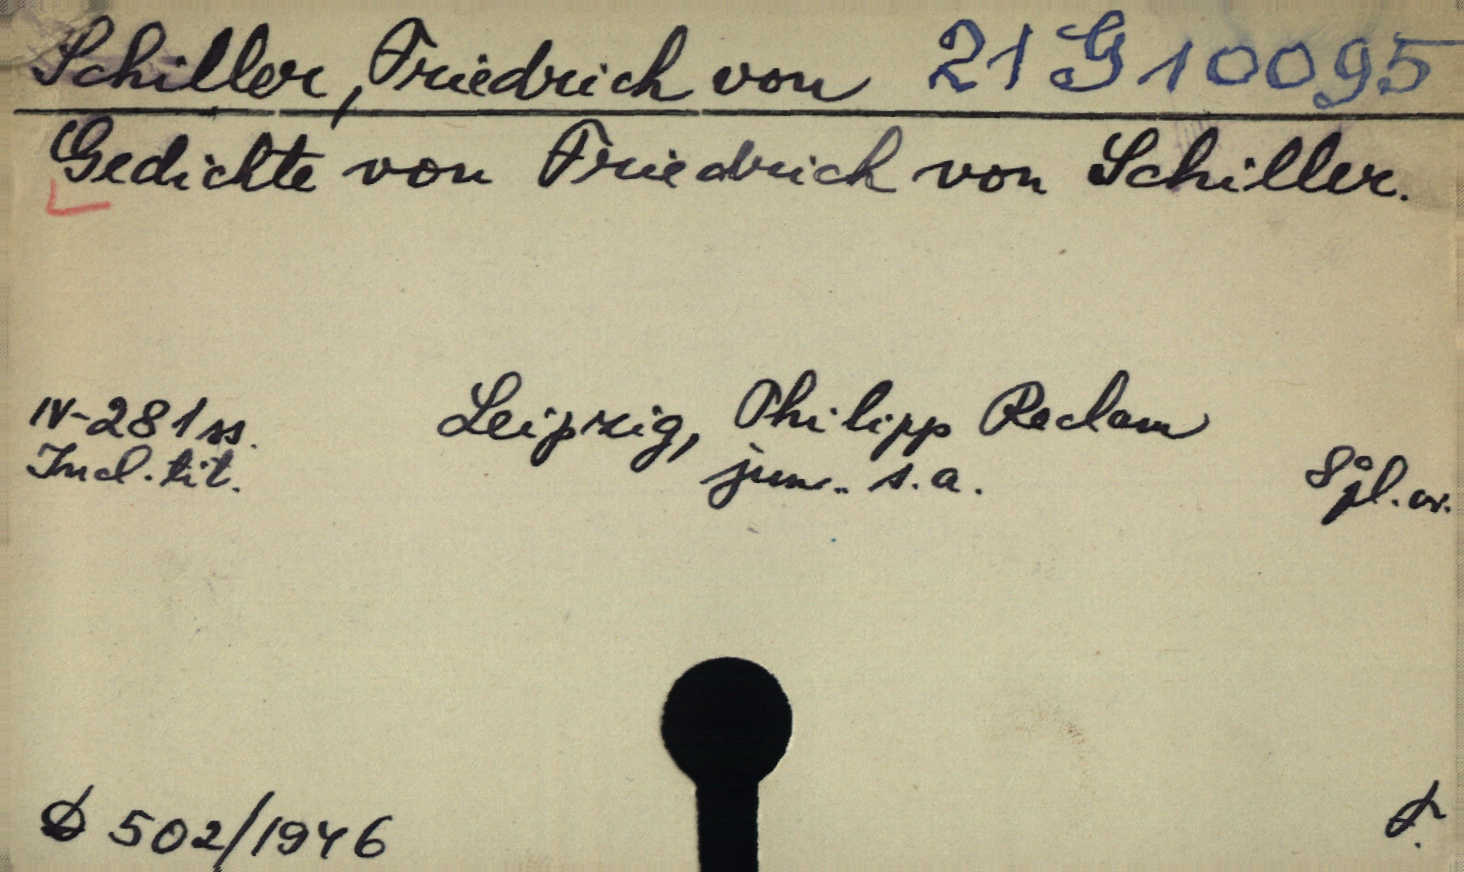 Schiller, Friedrich von 21 G 10095
Gedichte von Friedrich von Schiller.
IV-281 ss.
Incl. tit.
Leipzig, Philipp Reclam
jun.. s.a.
8° pl. or.
D 502/1946